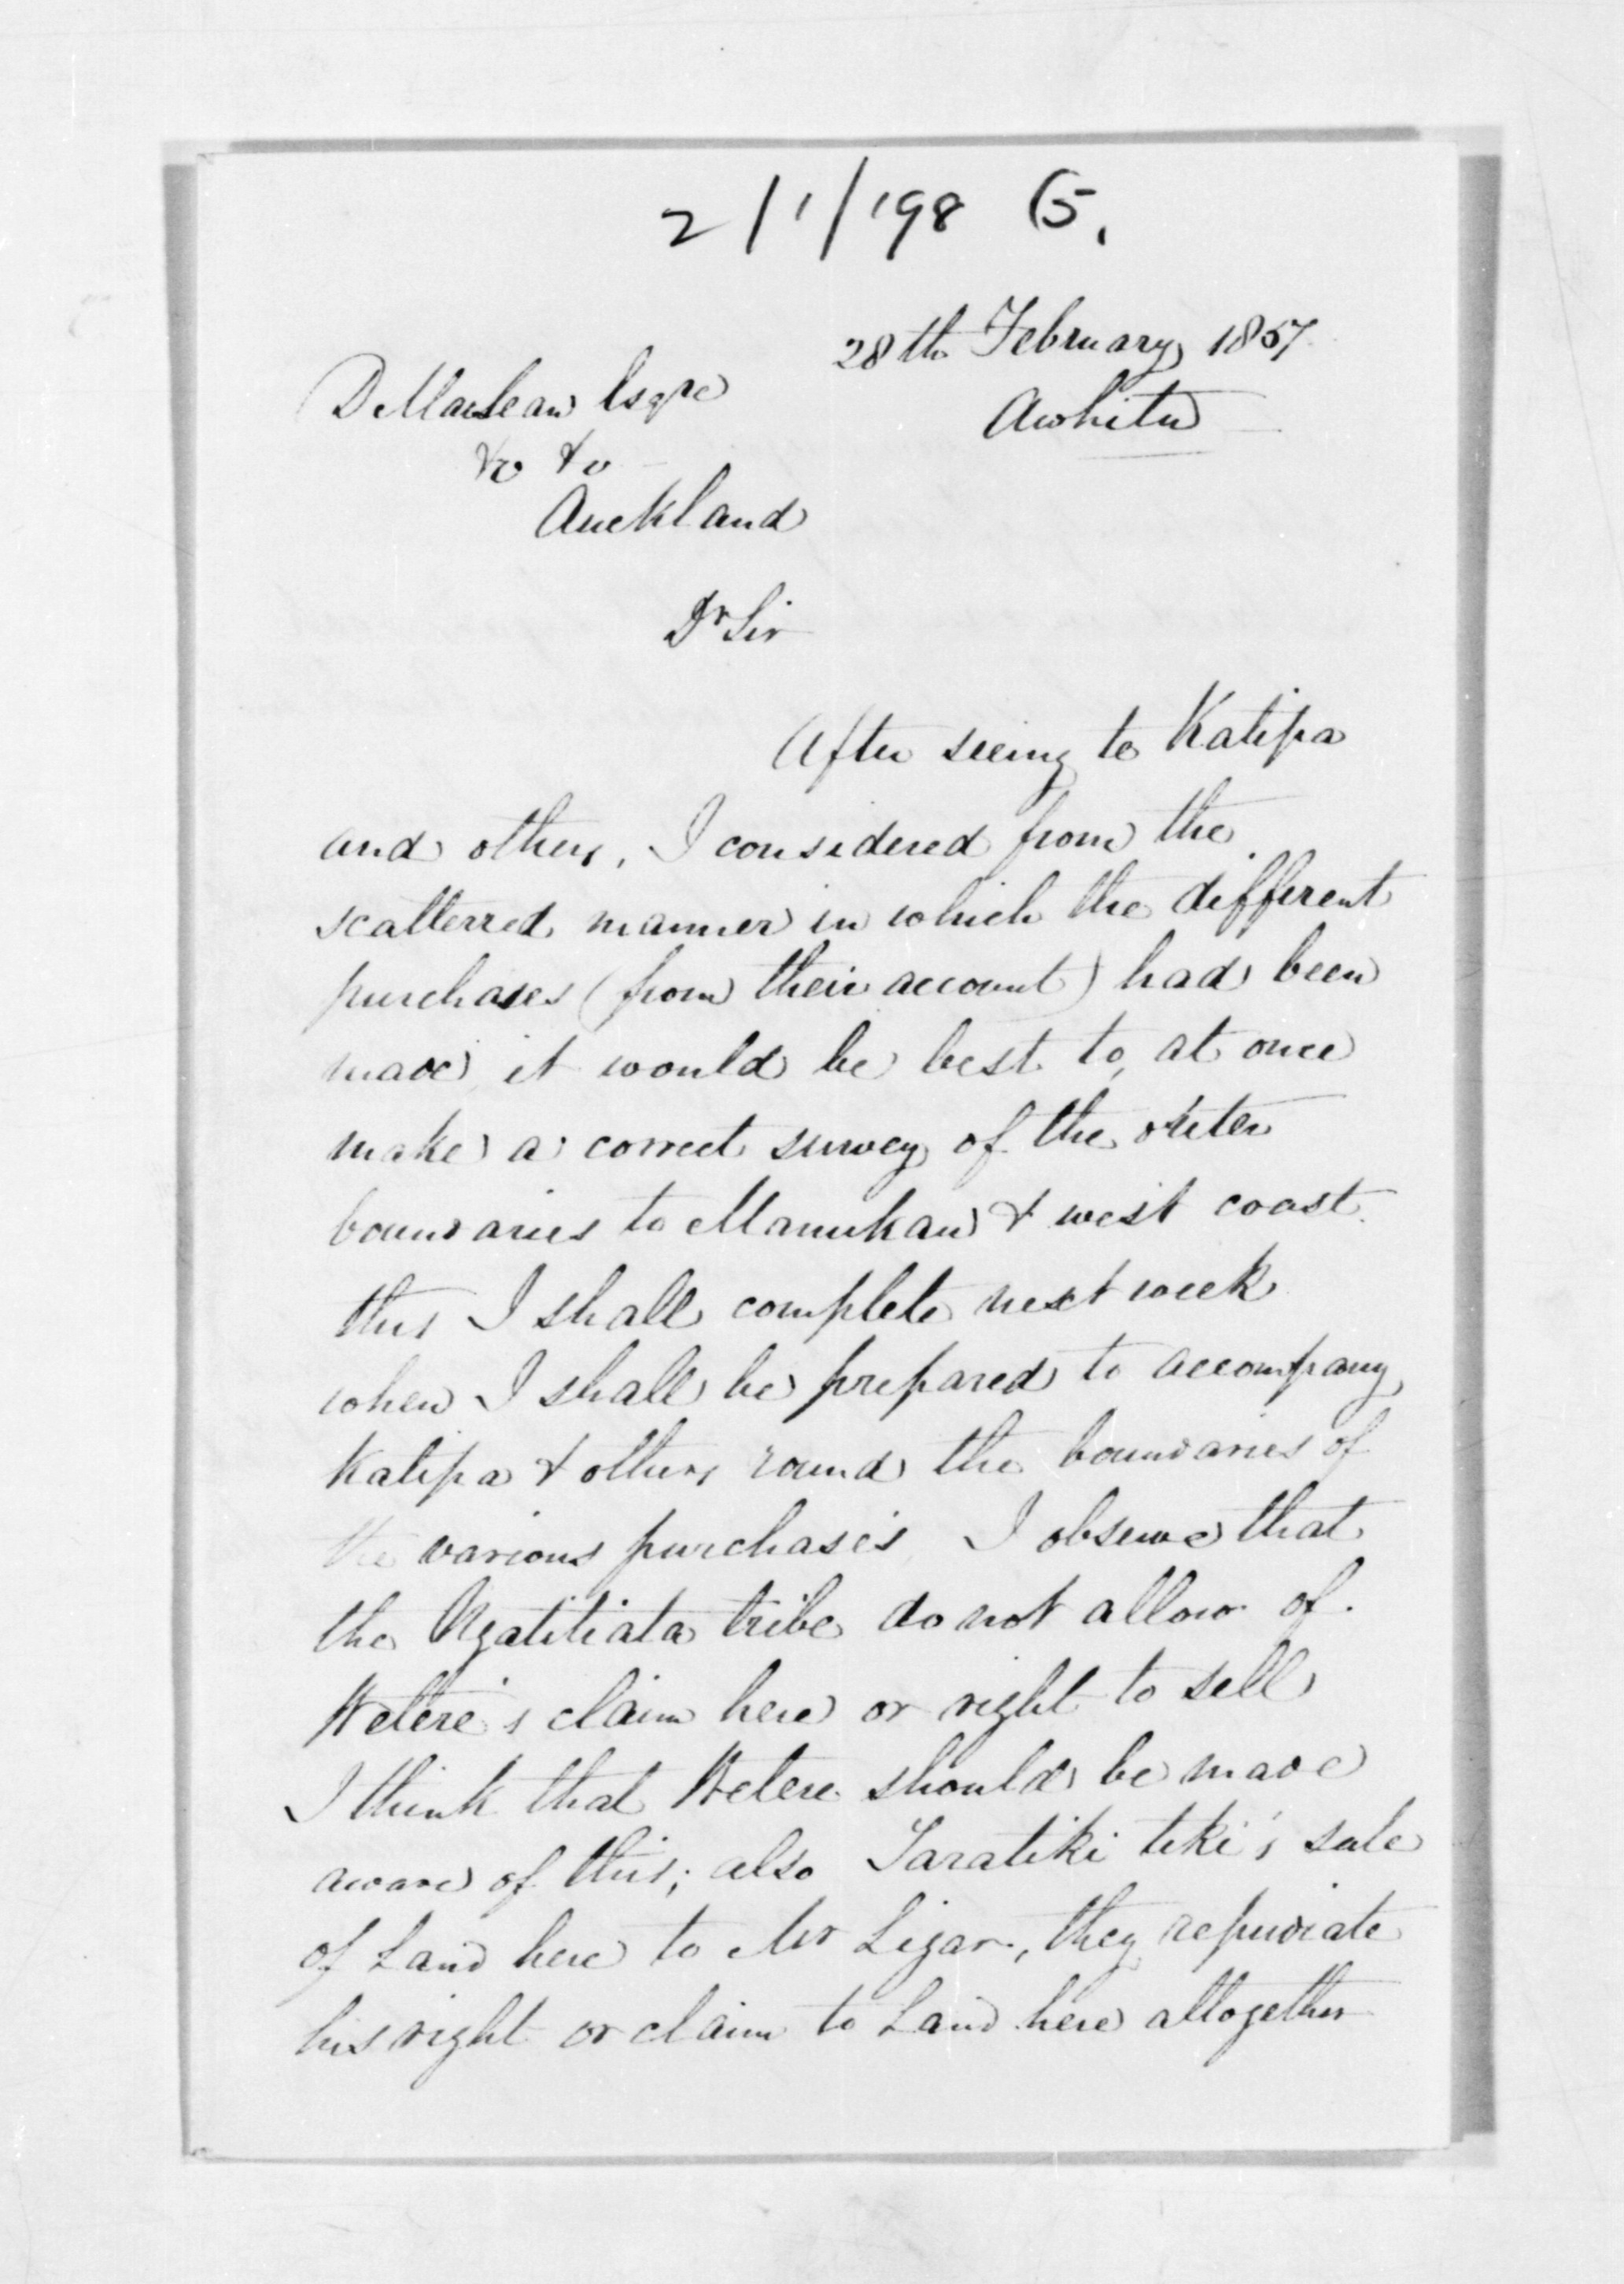 2/1/198 (5.
28th February 1857
Awhitu
D MacLean Esqre
&c &c
Auckland
Dr Sir
After seeing te Katipa
and others, I considered from the
scatterred manner in which the different
purchases (from their account) had been
made it would be best to, at once
make a correct survey of the outer
boundaries to Manukau & west coast
this I shall complete next week
when I shall be prepared to accompany
Katipa & others round the boundaries of
the various purchases I observe that
the Ngatitiata tribe do not allow of
Wetere's claim here or right to sell
I think that Wetere should be made
aware of this; also Taratiki tiki's sale
of Land here to Mr Ligar, they repudiate
his right or claim to Land here altogether